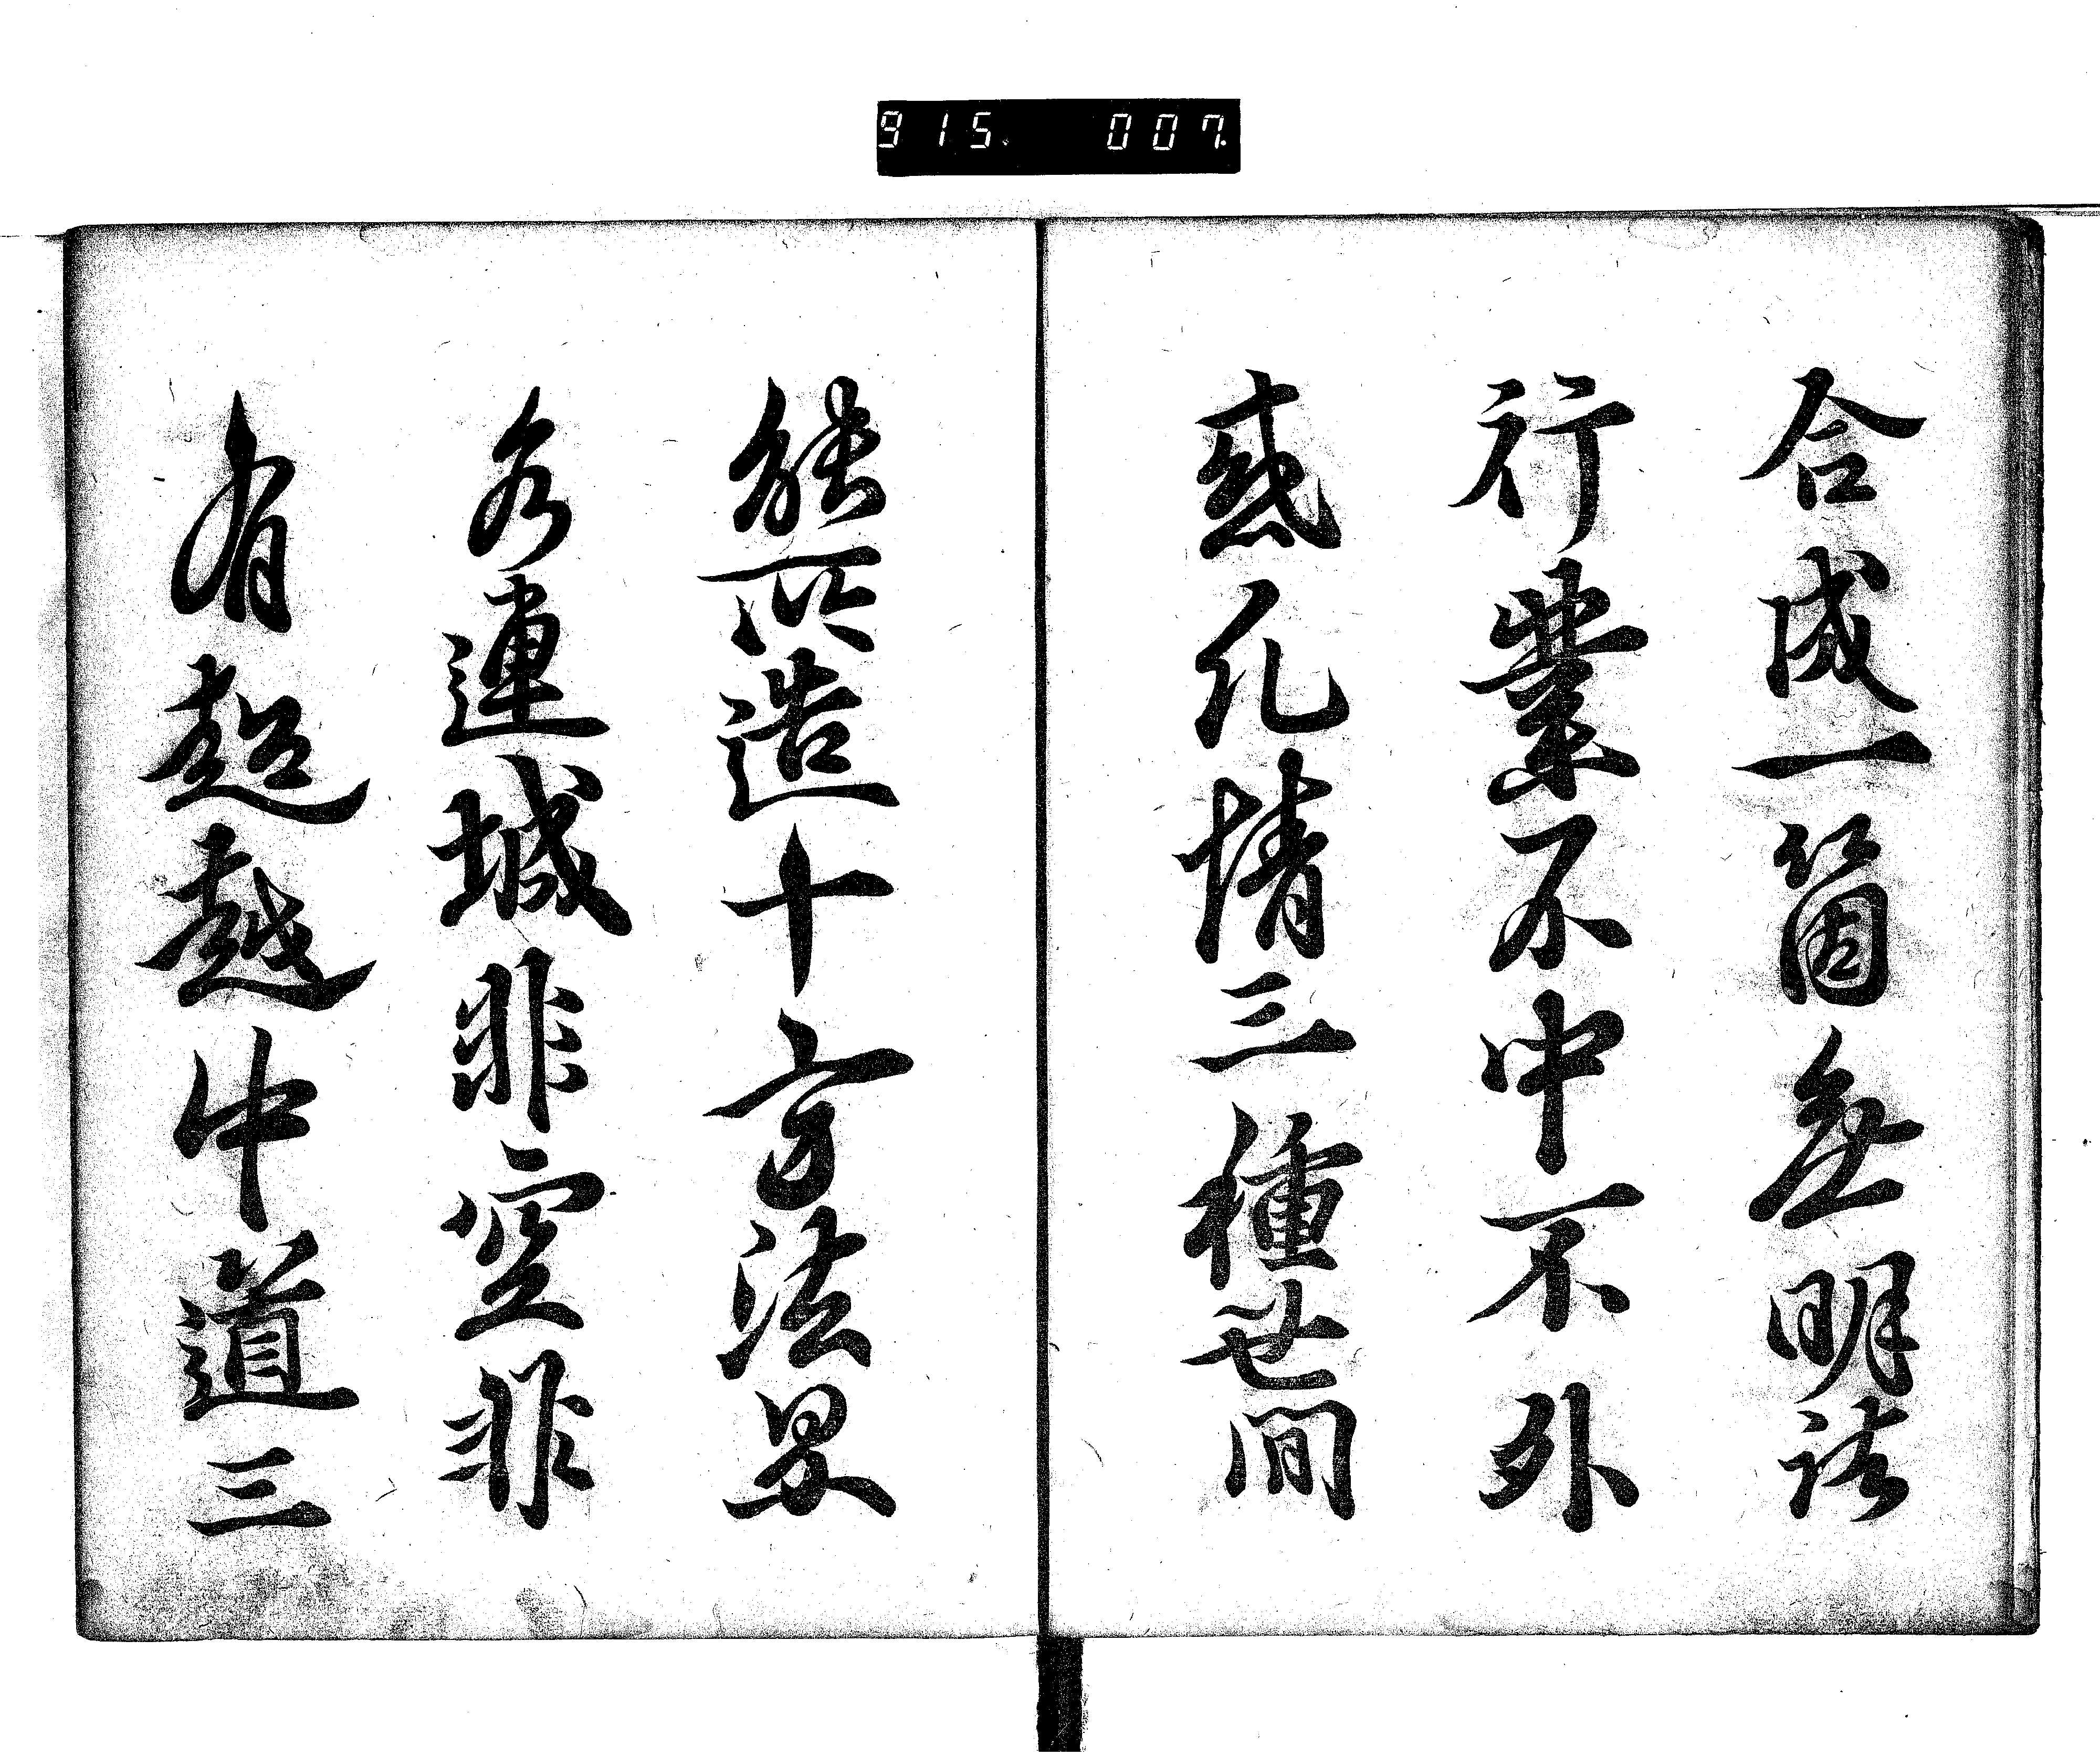 915. 007.
合成一箇無明諸
行業不中不外
惑凡情三種世間
能所造十方法界
連城非空非
有超越中道三